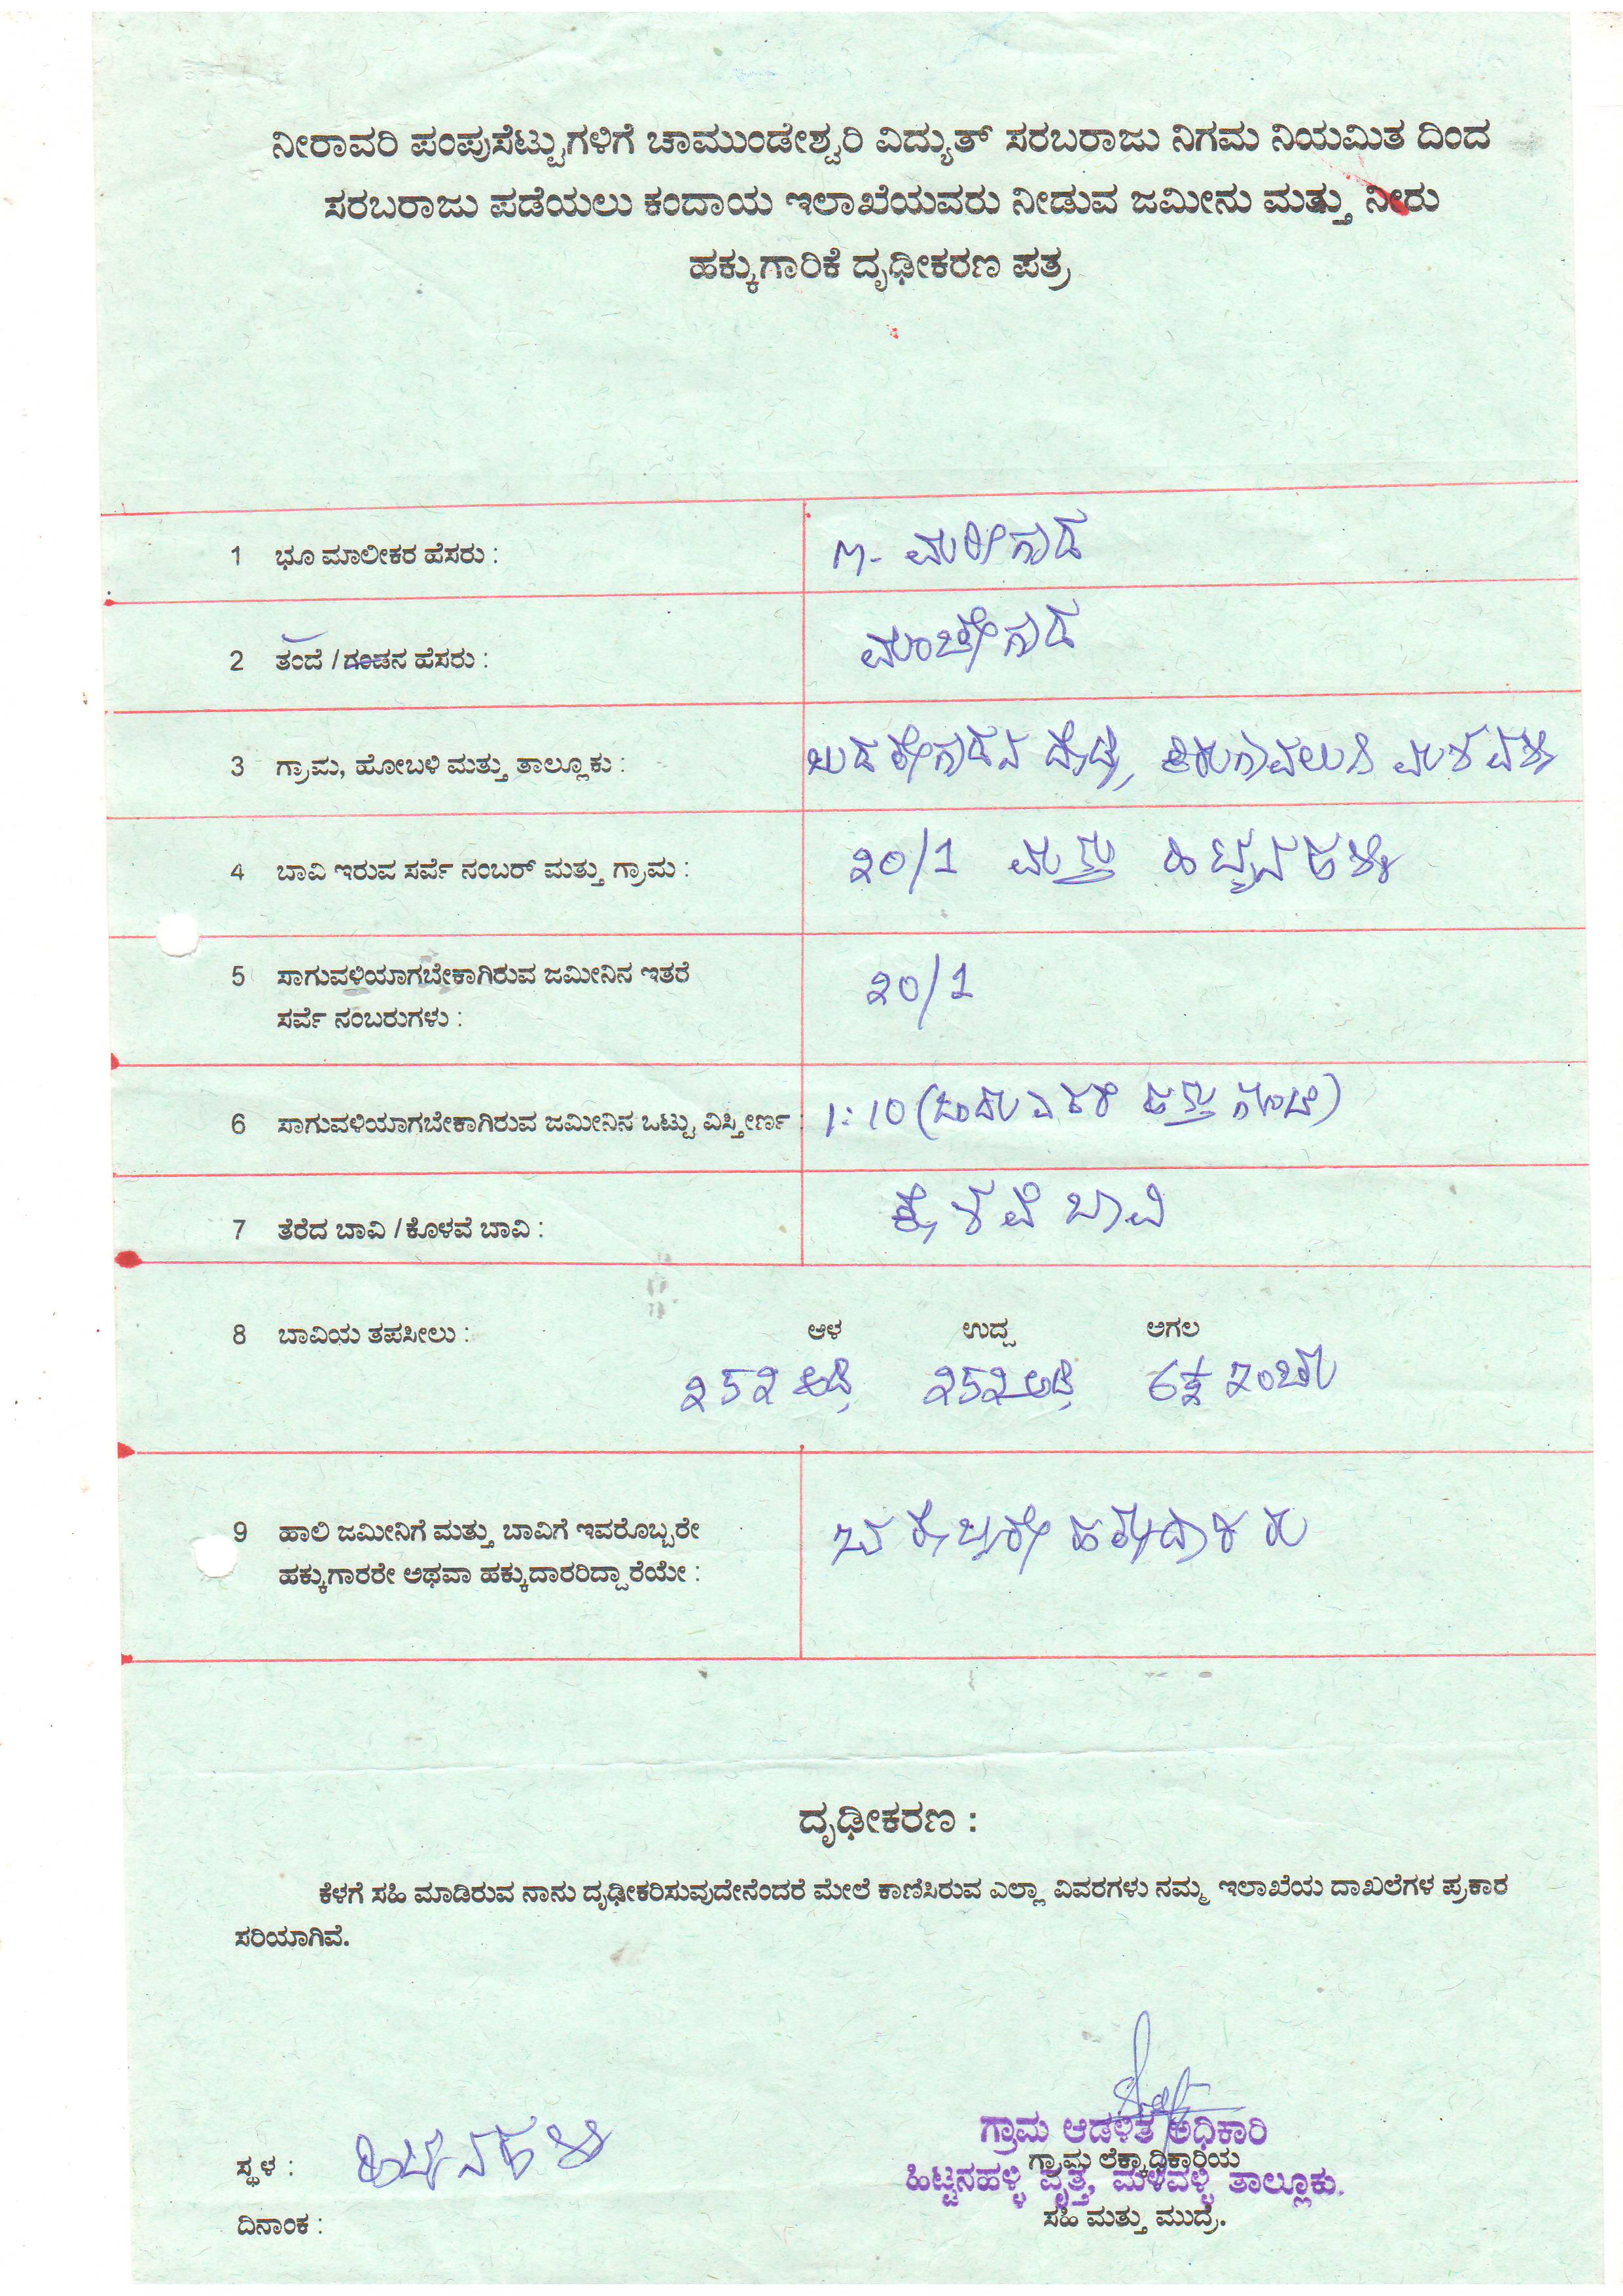 ನೀರಾವರಿ ಪಂಪುಸೆಟ್ಟುಗಳಿಗೆ ಚಾಮುಂಡೇಶ್ವರಿ ವಿದ್ಯುತ್ ಸರಬರಾಜು ನಿಗಮ ನಿಯಮಿತ ದಿಂದ
ಸರಬರಾಜು ಪಡೆಯಲು ಕಂದಾಯ ಇಲಾಖೆಯವರು ನೀಡುವ ಜಮೀನು ಮತ್ತು ನೀರು
ಹಕ್ಕುಗಾರಿಕೆ ದೃಢೀಕರಣ ಪತ್ರ
1 ಭೂ ಮಾಲೀಕರ ಹೆಸರು : M- ಮರೀಗೌಡ
2 ತಂದೆ / ಗಂಡನ ಹೆಸರು : ಮಂಚೇಗೌಡ
3 ಗ್ರಾಮ, ಹೋಬಳಿ ಮತ್ತು ತಾಲ್ಲೂಕು : ಕಿರುಗಾವಲು ಮಳವಳ್ಳಿ
4 ಬಾವಿ ಇರುವ ಸರ್ವೆ ನಂಬರ್ ಮತ್ತು ಗ್ರಾಮ : ೨೦/1 ಮತ್ತು ಹಿಟ್ಟನಹಳ್ಳಿ
5 ಸಾಗುವಳಿಯಾಗಬೇಕಾಗಿರುವ ಜಮೀನಿನ ಇತರೆ ೨೦/1
ಸರ್ವೆ ನಂಬರುಗಳು :
6 ಸಾಗುವಳಿಯಾಗಬೇಕಾಗಿರುವ ಜಮೀನಿನ ಒಟ್ಟು ವಿಸ್ತೀರ್ಣ : 1:10 (ಒಂದು ಎಕರೆ ಹತ್ತು ಗುಂಟೆ)
7 ತೆರೆದ ಬಾವಿ / ಕೊಳವೆ ಬಾವಿ : ಕೊಳವೆ ಬಾವಿ
8 ಬಾವಿಯ ತಪಸೀಲು : ಆಳ ಉದ್ದ ಅಗಲ
೨5೨ ಅಡಿ ೨5೨ ಅಡಿ 6½ ಇಂಚು
9 ಹಾಲಿ ಜಮೀನಿಗೆ ಮತ್ತು ಬಾವಿಗೆ ಇವರೊಬ್ಬರೇ ಒಬ್ಬರೇ ಹಕ್ಕುದಾರರು
ಹಕ್ಕುಗಾರರೇ ಅಥವಾ ಹಕ್ಕುದಾರರಿದ್ದಾರೆಯೇ :
ದೃಢೀಕರಣ :
ಕೆಳಗೆ ಸಹಿ ಮಾಡಿರುವ ನಾನು ದೃಢೀಕರಿಸುವುದೇನೆಂದರೆ ಮೇಲೆ ಕಾಣಿಸಿರುವ ಎಲ್ಲಾ ವಿವರಗಳು ನಮ್ಮ ಇಲಾಖೆಯ ದಾಖಲೆಗಳ ಪ್ರಕಾರ
ಸರಿಯಾಗಿವೆ.
ಗ್ರಾಮ ಆಡಳಿತ ಅಧಿಕಾರಿ
ಸ್ಥಳ : ಹಿಟ್ಟನಹಳ್ಳಿ ಗ್ರಾಮ ಲೆಕ್ಕಾಧಿಕಾರಿಯ
ಹಿಟ್ಟನಹಳ್ಳಿ ವೃತ್ತ, ಮಳವಳ್ಳಿ ತಾಲ್ಲೂಕು.
ದಿನಾಂಕ : ಸಹಿ ಮತ್ತು ಮುದ್ರೆ.